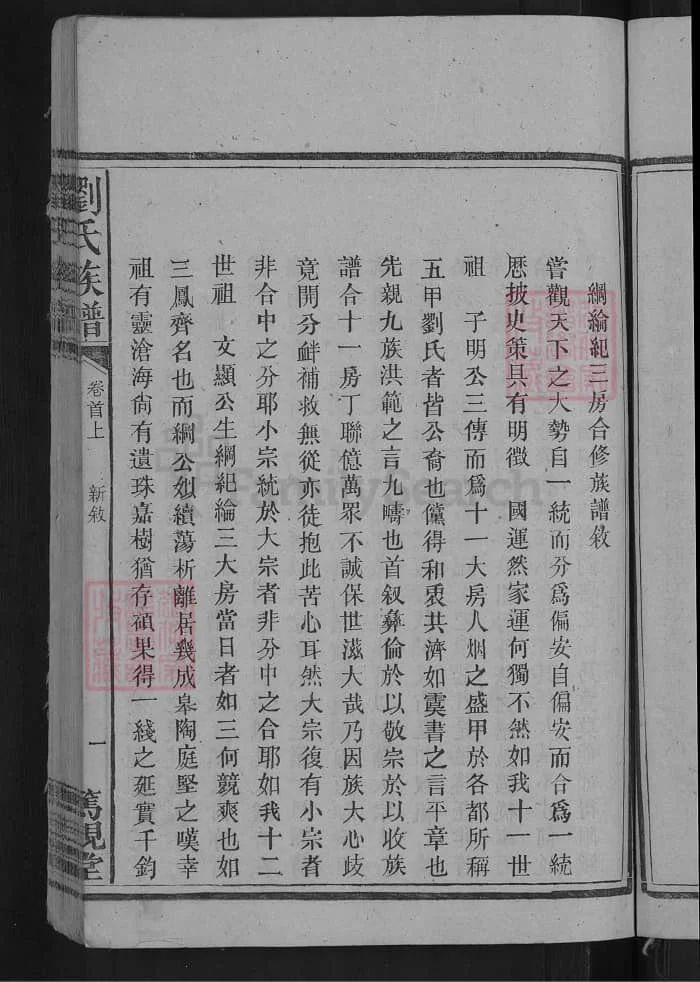 綱綸紀三房合修族譜敘
嘗觀天下之大勢自一統而分爲偏安自偏安而合爲一統
歷披史策具有明徵　國運然家運何獨不然如我十一世
祖　子明公三傳而爲十一大房人烟之盛甲於各都所稱
五甲劉氏者皆公裔也儻得和衷共濟如虞書之言平章也
先親九族洪範之言九疇也首叙彝倫於以敬宗於以收族
譜合十一房丁聯億萬眾不誠保世滋大哉乃因族大心歧
竟開分衅補救無從亦徒抱此苦心耳然大宗復有小宗者
非合中之分耶小宗統於大宗者非分中之合耶如我十二
世祖　文顯公生綱紀綸三大房當日者如三何競爽也如
三鳳齊名也而綱公姒續蕩析離居幾成皋陶庭堅之嘆幸
祖有靈滄海尙有遺珠嘉樹猶存碩果得一綫之延實千鈞
劉氏族譜
卷首上
新敘
一
篤親堂
FamilySearch